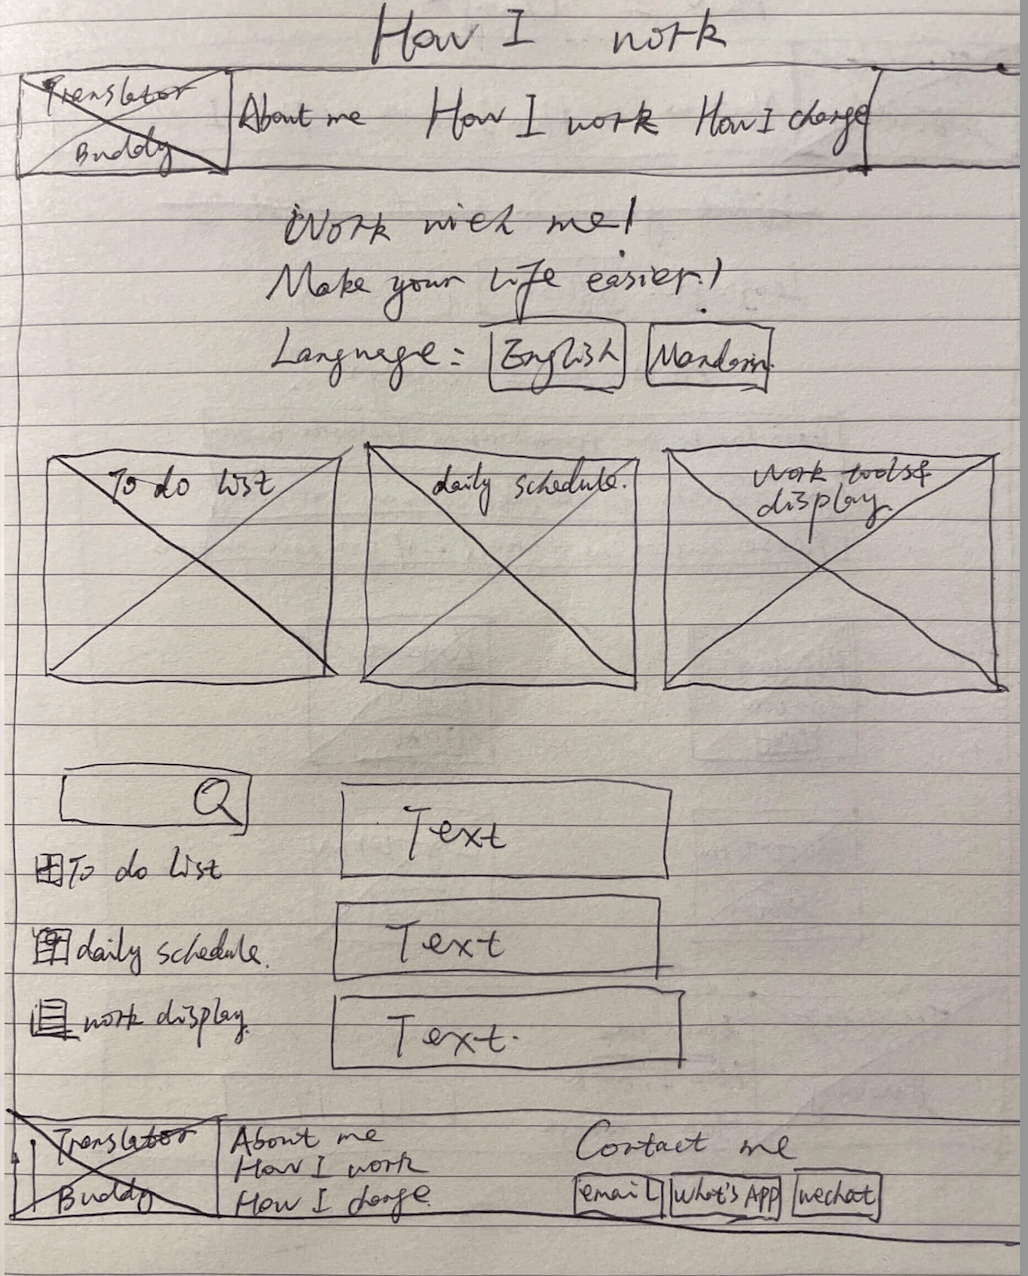 How I work
Translator
Buddy
About me How I work How I charge
Work with me!
Make your life easier!
Language: English Mandarin
To do list
daily schedule.
Work tools &
display.
Text
To do list
Text
daily schedule.
work display.
Text.
Translator
Buddy
About me
How I work
How I charge
Contact me
email What's App wechat